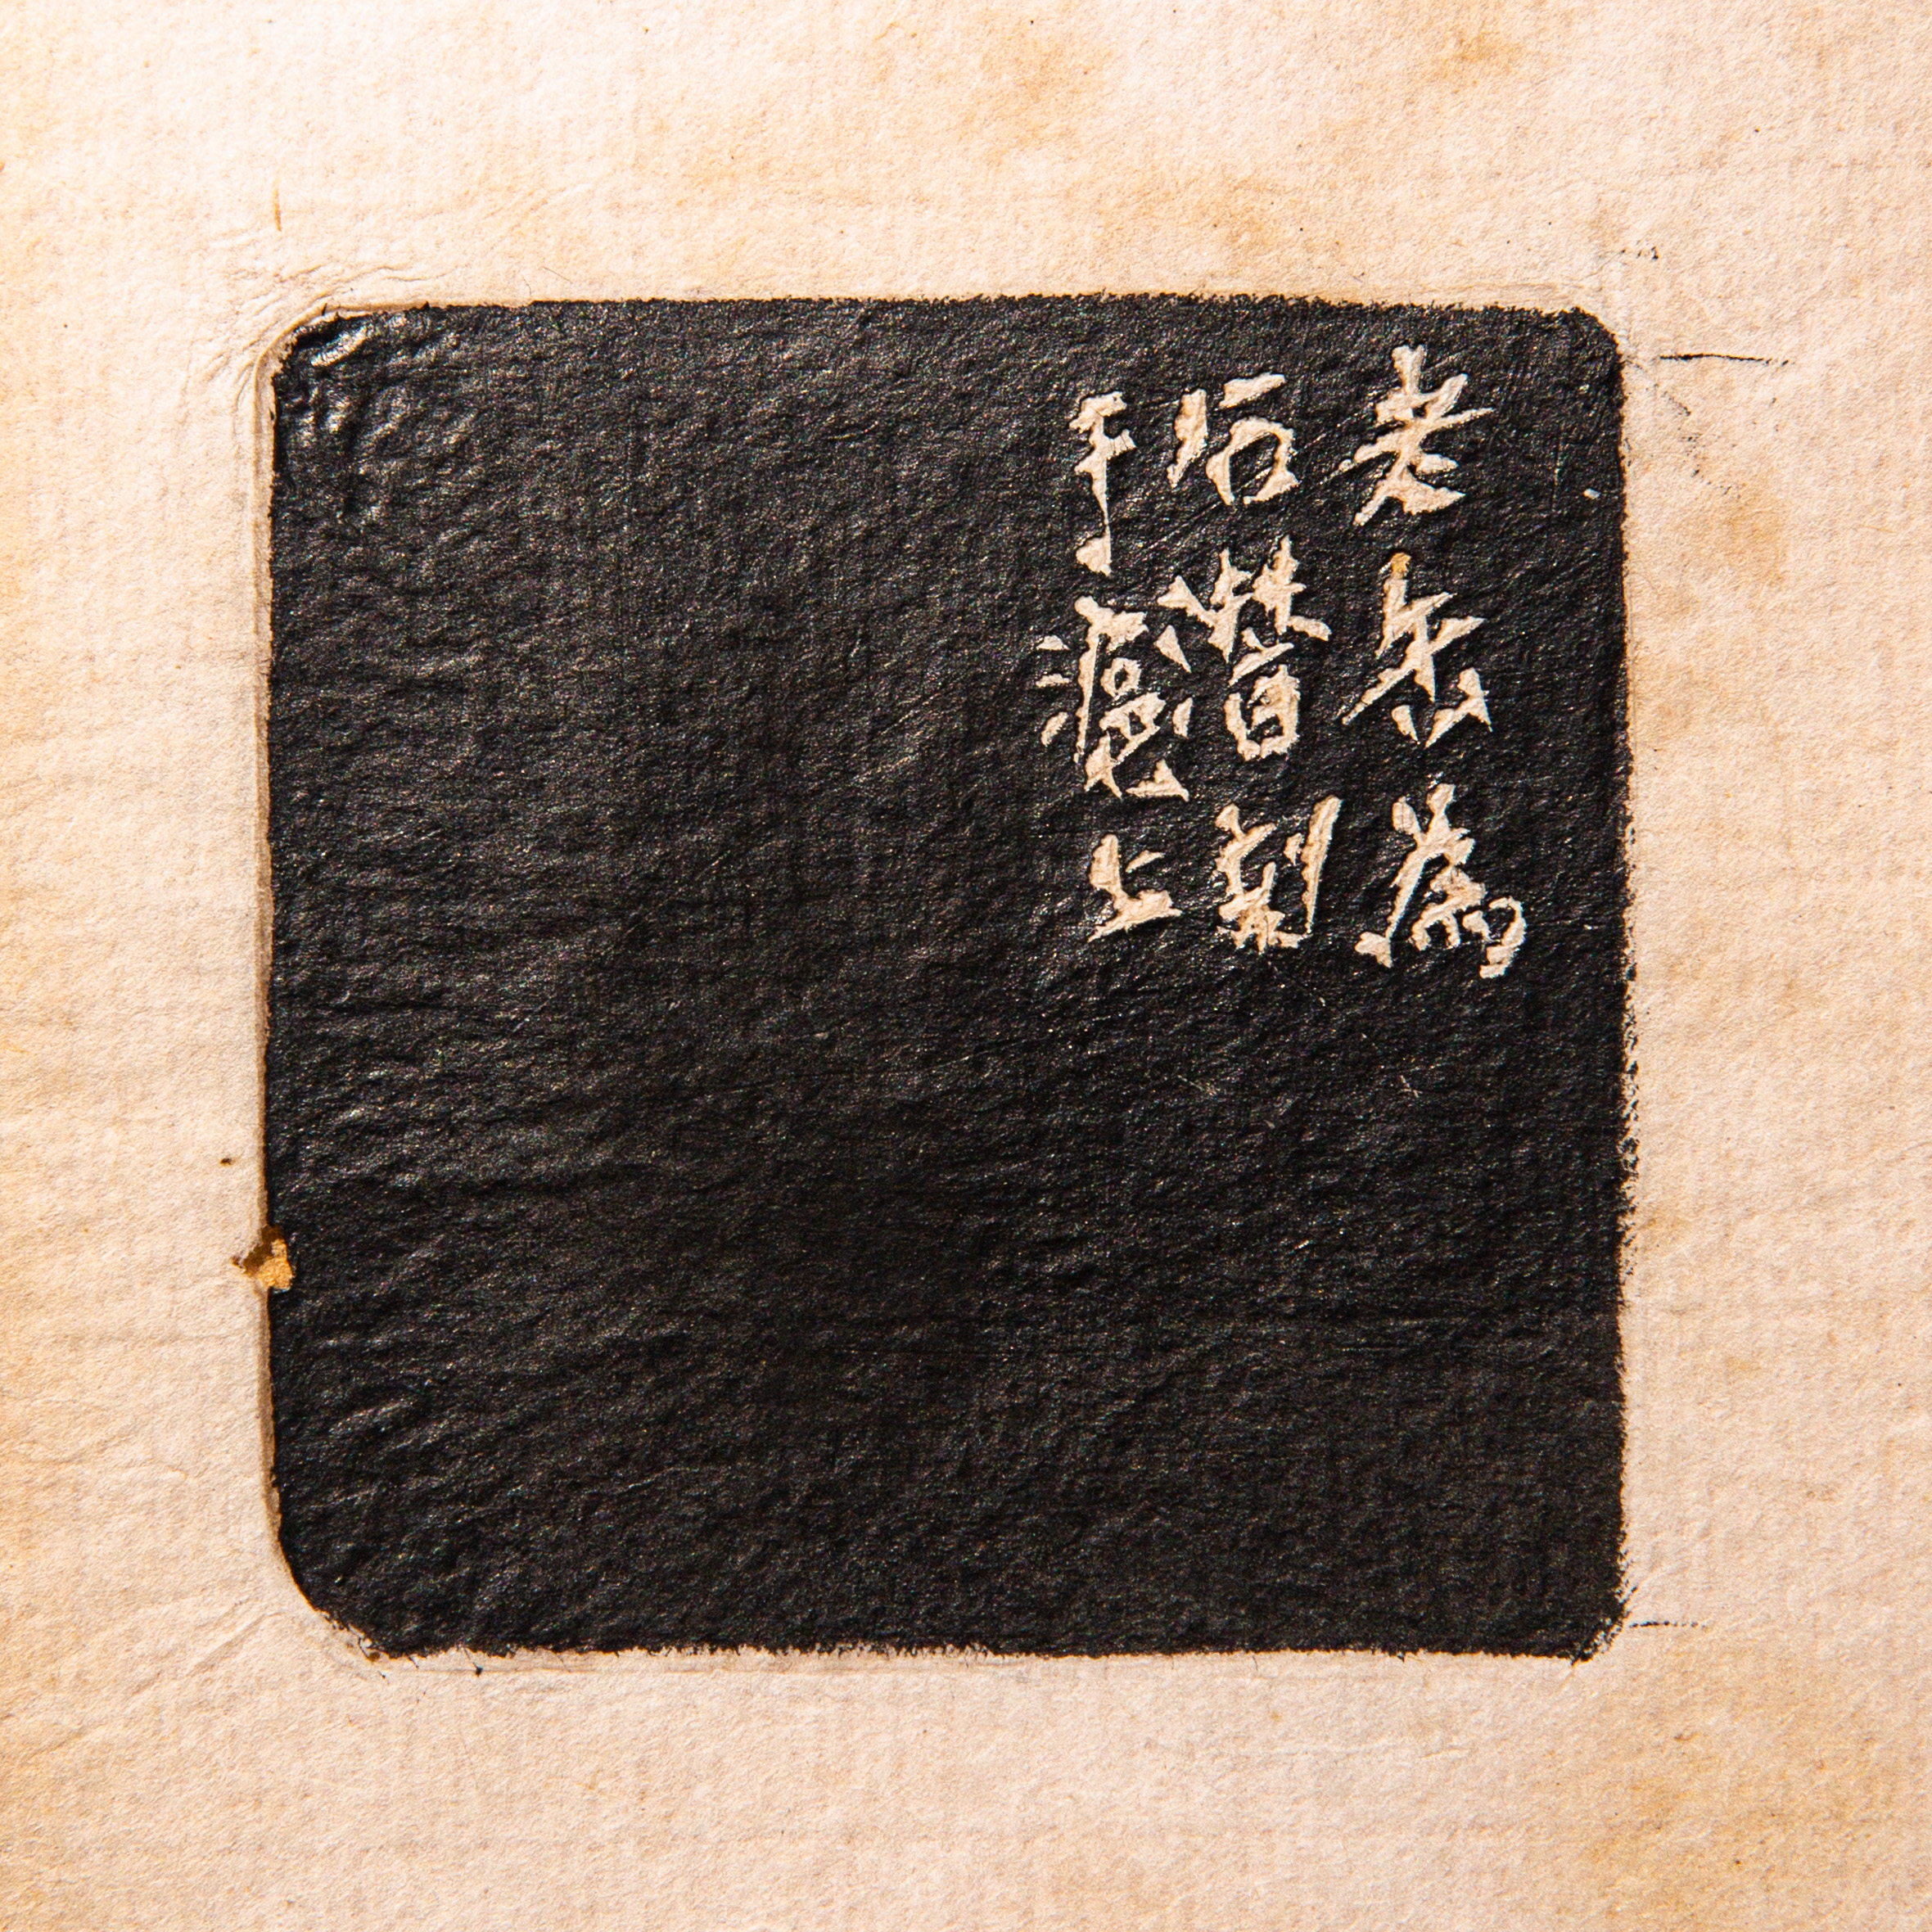 老缶為
石潛刻
于滬上